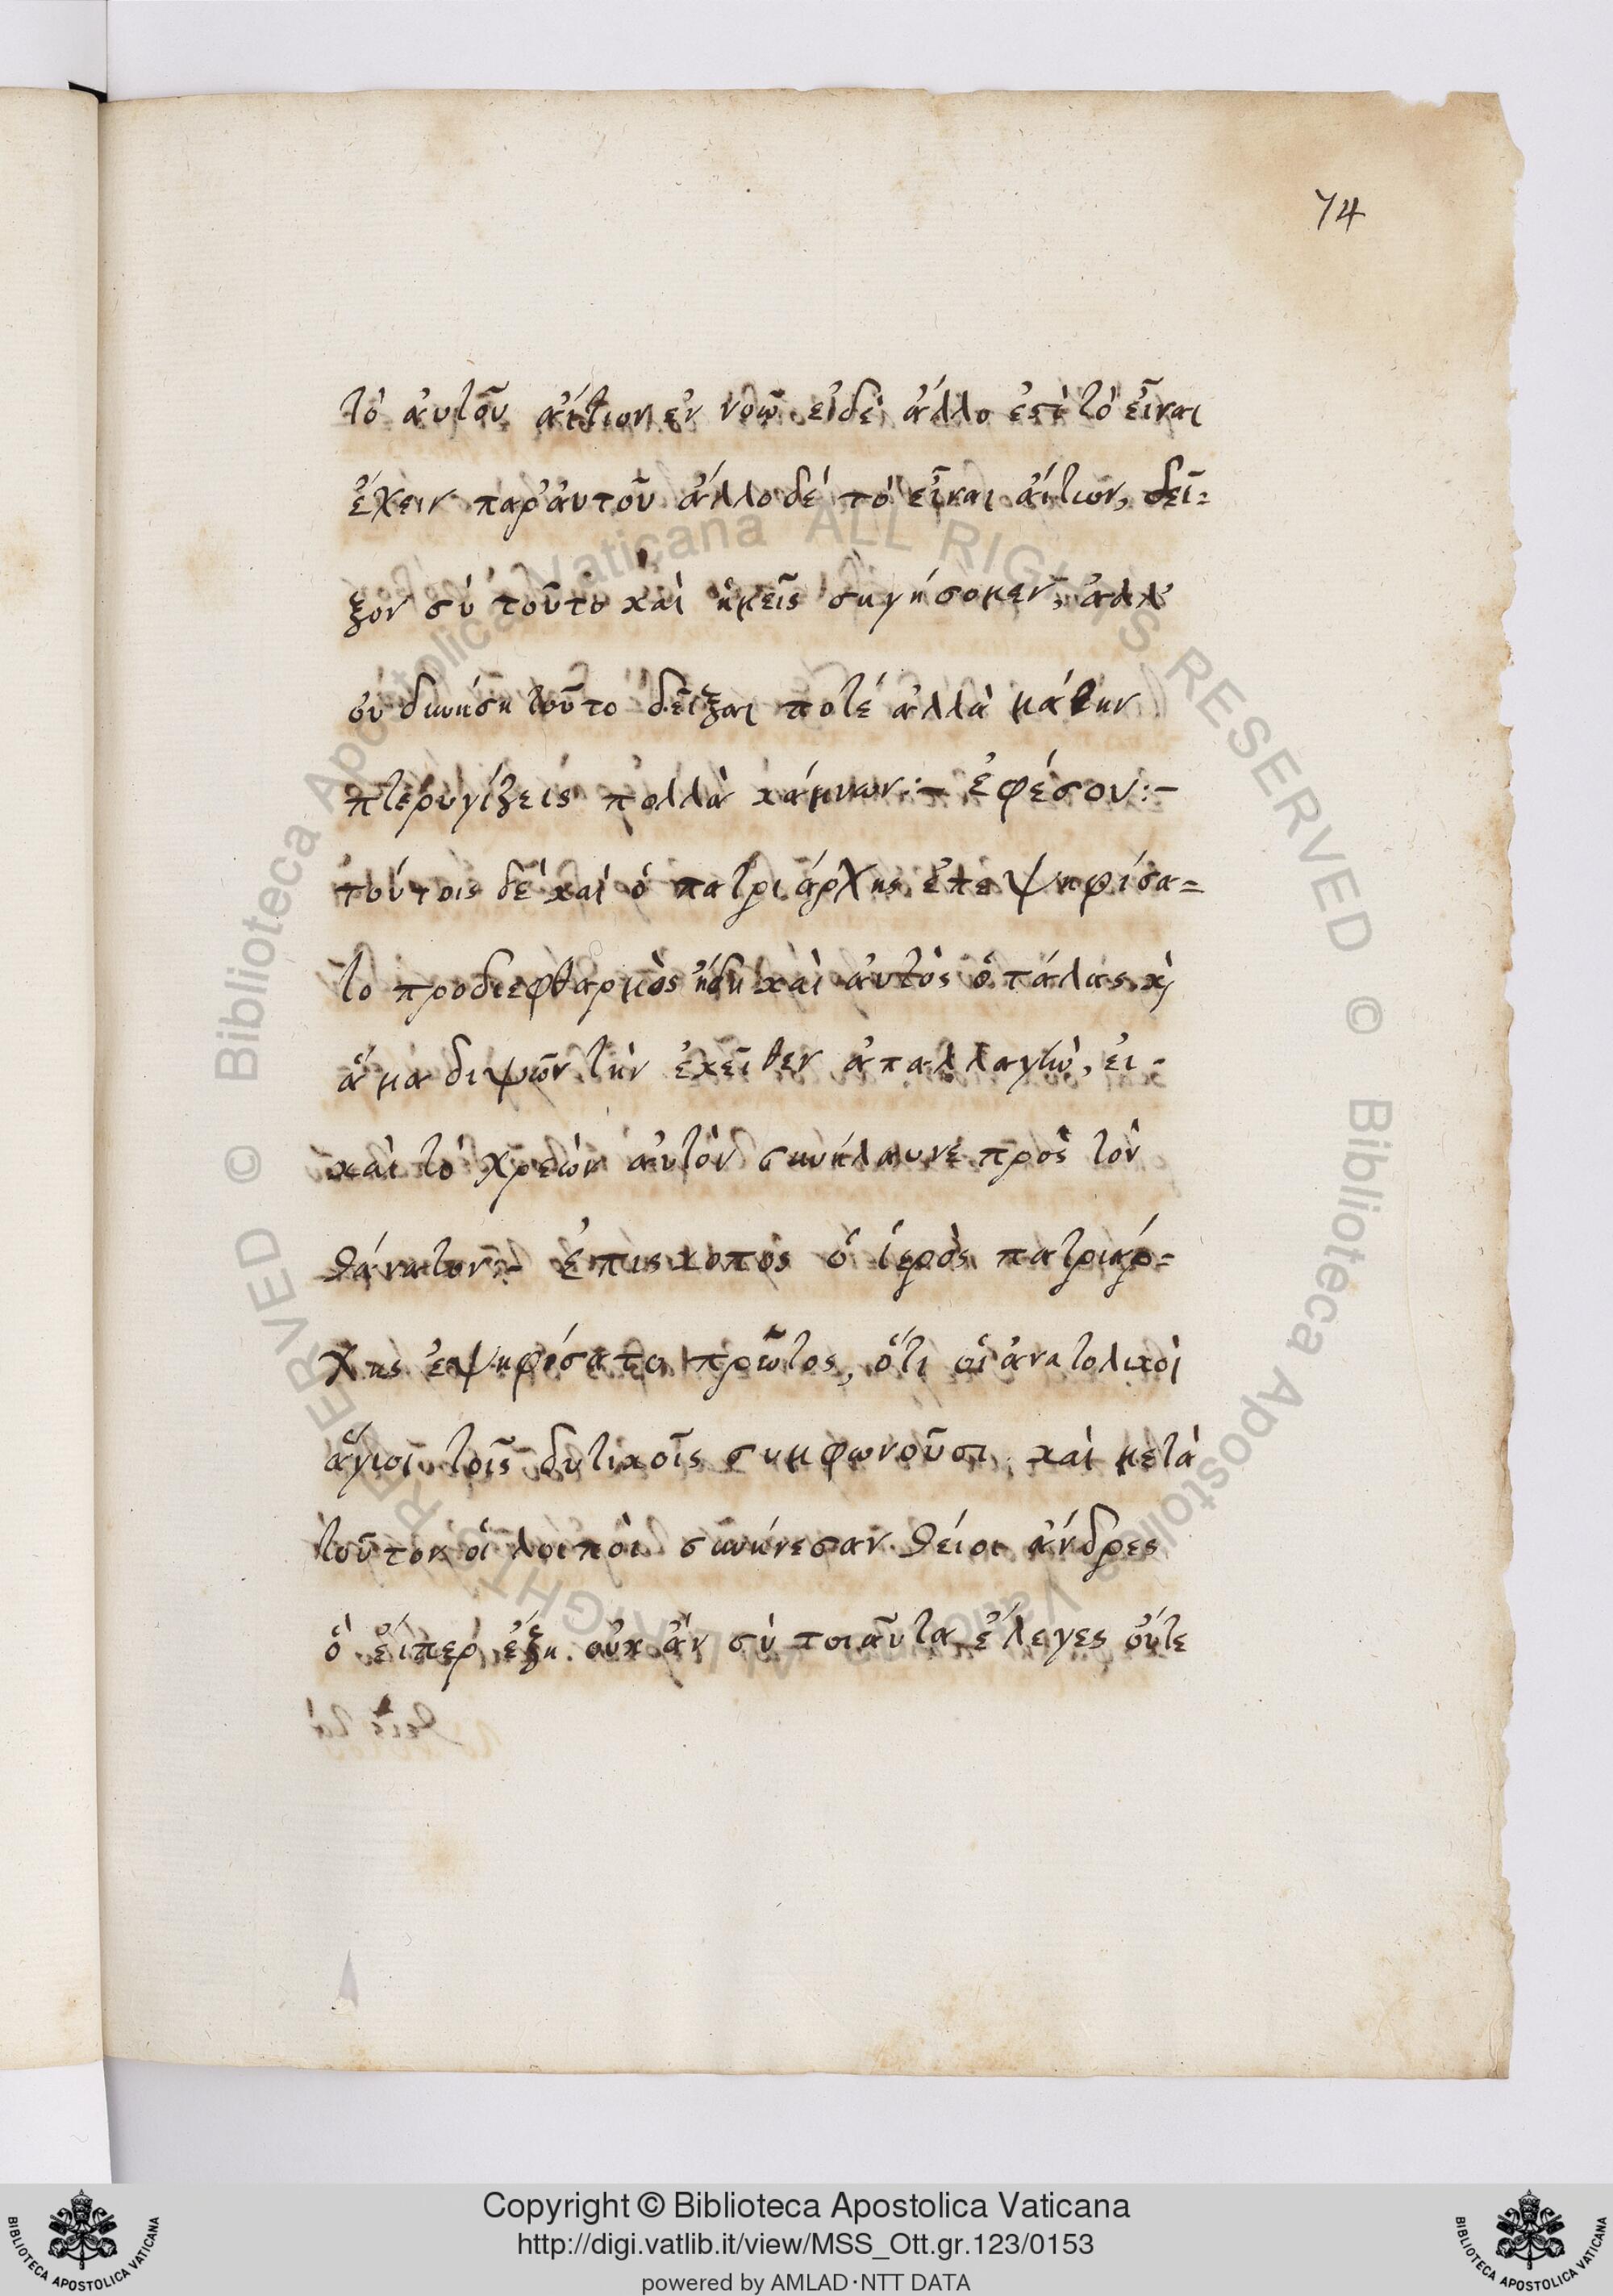 74
τὸ αὐτοῦ αἴτιον ἐν νοῶ. εἰ δὲ ἄλλο ἐστὶ τὸ εἶναι
ἔχειν παρ' ἀυτοῦ ἄλλο δέ τὸ εἶναι ἄιτιον, δεῖ=
ξον σὺ τοῦτο καὶ ἡμεῖς σιγήσομεν, ἀλλ'
οὐ δυνήση τοῦτο δεῖξαι ποτέ ἀλλὰ μάτην
πτερυγίζεις πολλὰ κάμνων:- ἐφέσου:-
τούτοις δὲ καὶ ὁ πατριάρχης ἐπεψηφίσα=
το προδιεφθαρμένος ἤδη καὶ ἀυτὸς ὁ τάλας κὶ
ἅμα διψῶν τὴν ἐκεῖθεν ἀπαλλαγὴν, εἰ-
καὶ τὸ χρεὼν αὐτὸν συνήλαυνε πρὸς τὸν
θάνατον:- ἐπισκοπος ὁ ἱερὸς πατριάρ=
χης ἐψηφίσατο πρῶτος, ὅτι οἱ ἀνατολικοὶ
ἅγιοι τοῖς δυτικοῖς συμφωνοῦσι. καὶ μετὰ
τοῦτον οἱ λοιποὶ συνήνεσαν θείοι ἄνδρες
ὁ εἴπερ ἔζη. οὐκ ἂν σὺ τοιαῦτα ἔλεγες οὔτε
Copyright © Biblioteca Apostolica Vaticana
http://digi.vatlib.it/view/MSS_Ott.gr.123/0153
powered by AMLAD·NTT DATA